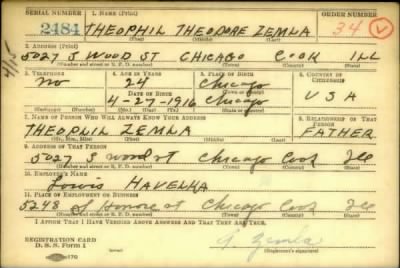 SERIAL NUMBER 1. NAME (Print) ORDER NUMBER
2484 THEOPHIL THEODORE ZEMLA 34 V
(First) (Middle) (Last)
2. ADDRESS (Print)
5027 S WOOD ST CHICAGO COOK ILL
(Number and street or R. F. D. number) (Town) (County) (State)
3. TELEPHONE 4. AGE IN YEARS 5. PLACE OF BIRTH 6. COUNTRY OF CITIZENSHIP
no 24 Chicago
DATE OF BIRTH
4-27-1916 Chicago USA
(Mo.) (Day) (Yr.)
7. NAME OF PERSON WHO WILL ALWAYS KNOW YOUR ADDRESS 8. RELATIONSHIP OF THAT PERSON
THEOPHIL ZEMLA FATHER
(Mr., Mrs., Miss) (First) (Middle) (Last)
9. ADDRESS OF THAT PERSON
5027 S wood st Chicago Cook Ill
(Number and street or R. F. D. number) (Town) (County) (State)
10. EMPLOYER'S NAME
Louis HAVELKA
11. PLACE OF EMPLOYMENT OR BUSINESS
5248 S Honore st Chicago Cook Ill
(Number and street or R. F. D. number) (Town) (County) (State)
I AFFIRM THAT I HAVE VERIFIED ABOVE ANSWERS AND THAT THEY ARE TRUE.
REGISTRATION CARD
D. S. S. Form 1
Zemla